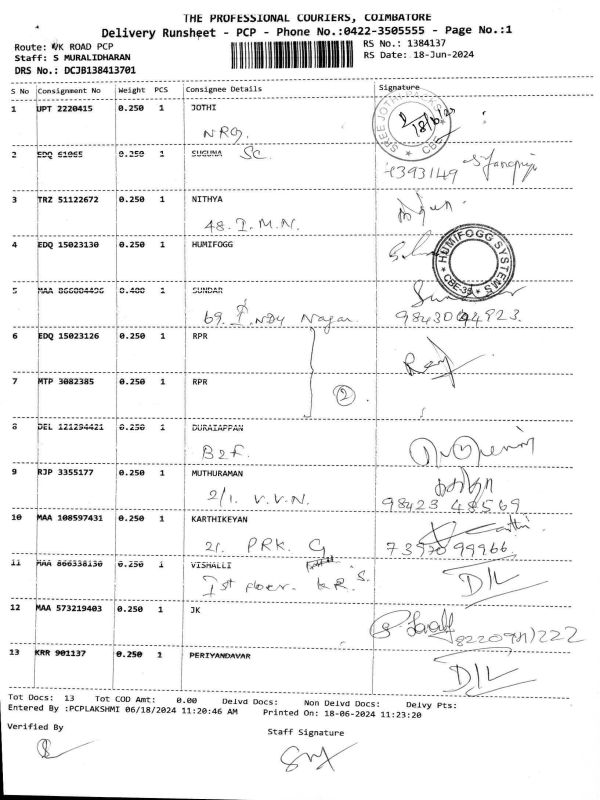 THE PROFESSIONAL COURIERS, COIMBATORE
Delivery Runsheet - PCP - Phone No.:0422-3505555 - Page No.:1
Route: VK ROAD PCP
RS No.: 1384137
Staff: S MURALIDHARAN
RS Date: 18-Jun-2024
DRS No.: DCJB138413701
S No Consignment No Weight PCS Consignee Details Signature
1 UPT 2220415 0.250 1 JOTHI
18/6/24
NRG.
CBE
2 EDQ 61065 0.250 1 SUGUNA SC.
3 TRZ 51122672 0.250 1 NITHYA
48. I. M. N.
4 EDQ 15023130 0.250 1 HUMIFOGG
HUMIFOGG SYSTEMS
CBE-35
5 MAA 866884496 0.400 1 SUNDAR
69. Nagar
6 EDQ 15023126 0.250 1 RPR
7 MTP 3082385 0.250 1 RPR
2
8 DEL 121294421 0.250 1 DURAIAPPAN
B2F.
9 RJP 3355177 0.250 1 MUTHURAMAN
2/1. V.V.N.
98423 48569
10 MAA 108597431 0.250 1 KARTHIKEYAN
21. PRK. G
73970 99966
11 MAA 866338130 0.250 1 VISHALLI
Ist floor. K.R.S.
D/L
12 MAA 573219403 0.250 1 JK
13 KRR 901137 0.250 1 PERIYANDAVAR
D/L
Tot Docs: 13 Tot COD Amt: 0.00 Delvd Docs: Non Delvd Docs: Delvy Pts:
Entered By :PCPLAKSHMI 06/18/2024 11:20:46 AM Printed On: 18-06-2024 11:23:20
Verified By
Staff Signature